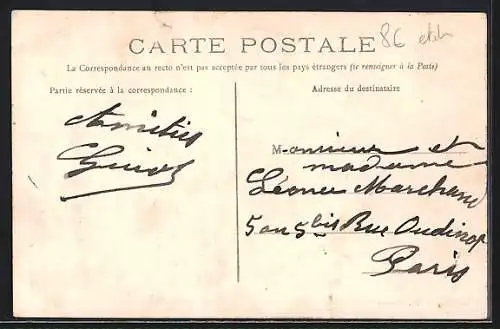 CARTE POSTALE
86
La Correspondance au recto n'est pas acceptée par tous les pays étrangers (se renseigner à la Poste)
Partie réservée à la correspondance :
Amitiés
Adresse du destinataire
Monsieur et
madame
Léonce Marchand
5 ou 5 bis Rue Oudinot
Paris